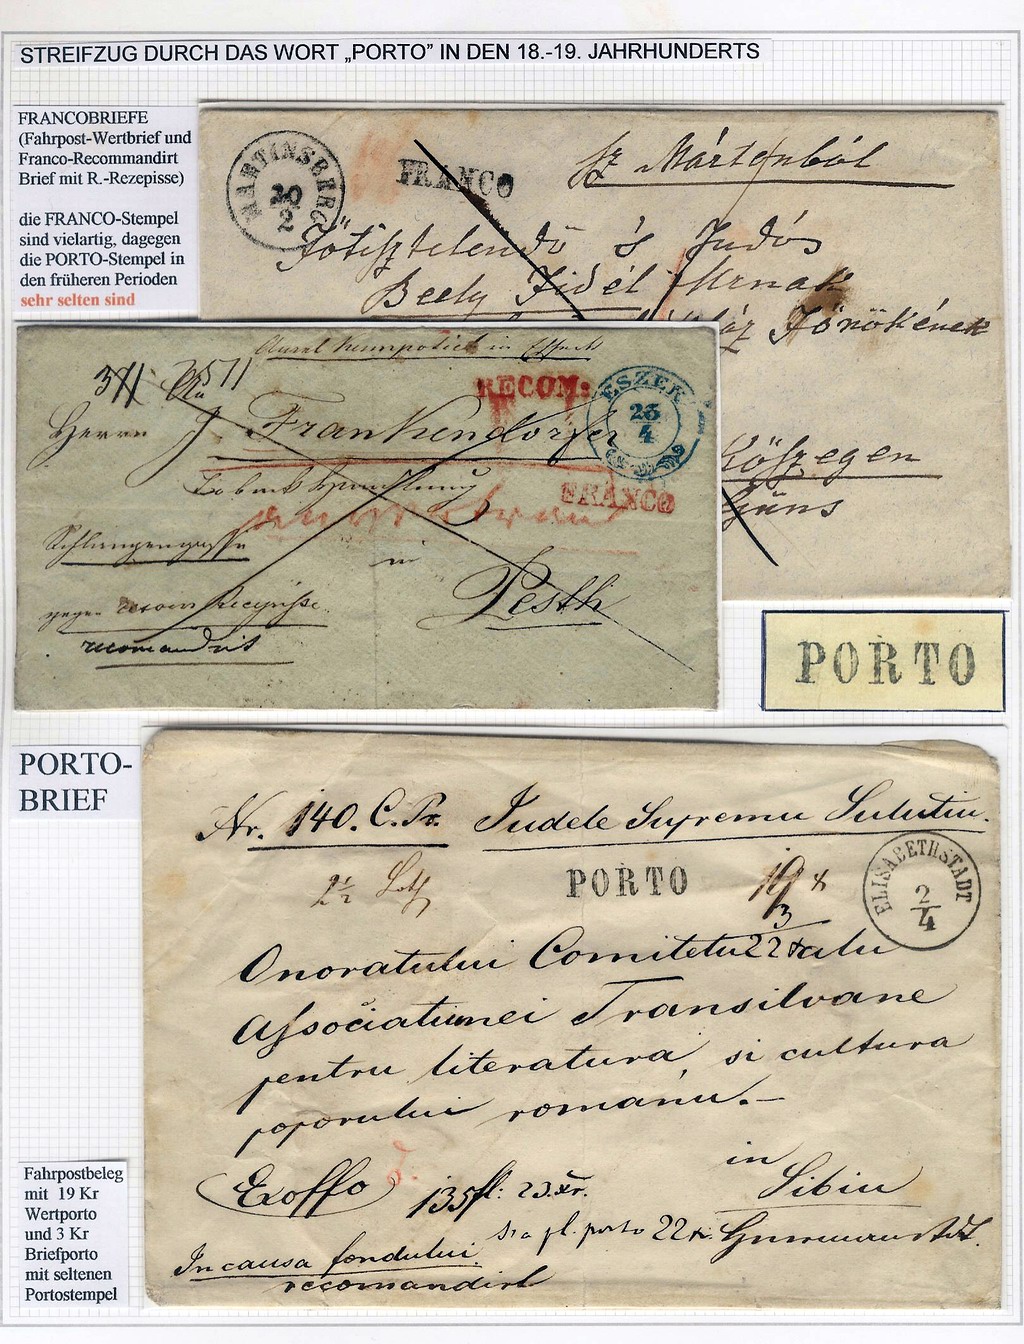 STREIFZUG DURCH DAS WORT „PORTO” IN DEN 18.-19. JAHRHUNDERTS
FRANCOBRIEFE
(Fahrpost-Wertbrief und
Franco-Recommandirt
Brief mit R.-Rezepisse)
die FRANCO-Stempel
sind vielartig, dagegen
die PORTO-Stempel in
den früheren Perioden
sehr selten sind
MARTINSBERG
20
2
FRANCO
Sz Mártonból
Főtisztelendő 's Tudós
Beely Fidél Urnak
Kőszegen
Güns
RECOM:
ESZEK
23
4
Herrn J Frankendorfer
FRANCO
Schlangengasse
in
Pesth
recomandirt
PORTO
PORTO-
BRIEF
Nr. 140. C. Pr. Judele Supremu
2½ Loth
PORTO
19 x
3
22 x
ELISABETHSTADT
2
4
Onoratului Comitetu alu
Associatiunei Transilvane
pentru literatura, si cultura
poporului romanu.—
in
Exoffo
Sibiu
135 fl: 23. xr.
porto 22 x.
Hermannstadt.
In causa fondului
recomandirt
Fahrpostbeleg
mit 19 Kr
Wertporto
und 3 Kr
Briefporto
mit seltenen
Portostempel